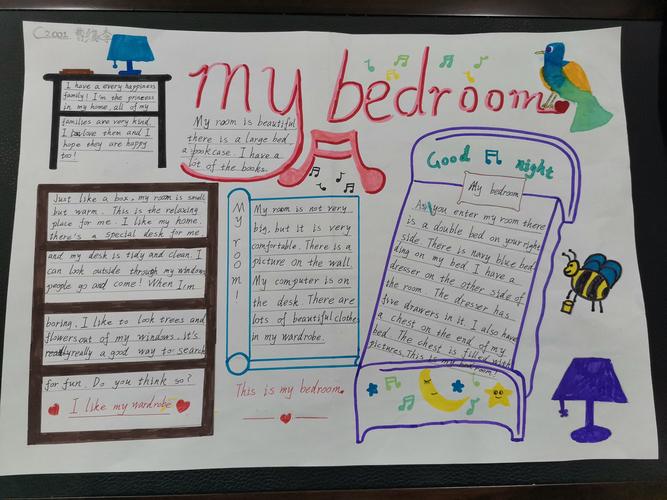 C2001
my bedroom
I have a every happiness
family! I'm the princess
in my home, all of my
families are very kind,
I love them and I
hope they are happy
too!
My room is beautiful
there is a large bed
a bookcase. I have a
lot of the books.
Just like a box, my room is small
but warm. This is the relaxing
place for me. I like my home.
there's a special desk for me.
and my desk is tidy and clean. I
can look outside through my windows
people go and come! When I'm
boring, I like to look trees and
flowers out of my windows. it's
really a good way to search
for fun. Do you think so?
I like my wardrobe
My room!
My room is not very
big, but it is very
comfortable. There is a
picture on the wall.
My computer is on
the desk There are
lots of beautiful clothes
in my wardrobe.
This is my bedroom.
Good night
My bedroom
As you enter my room there
is a double bed on your right
side. There is navy blue bed
ding on my bed. I have a
dresser on the other side of
the room. The dresser has
five drawers in it. I also have
a chest on the end of my
bed. The chest is filled with
pictures. This is my bedroom!